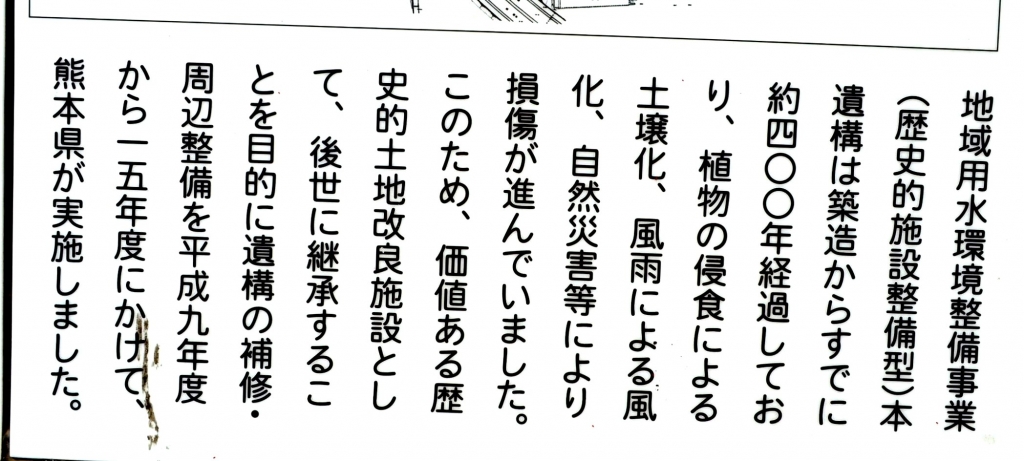 地域用水環境整備事業
(歴史的施設整備型)本
遺構は築造からすでに
約四〇〇年経過してお
り、植物の侵食による
土壌化、風雨による風
化、自然災害等により
損傷が進んでいました。
このため、価値ある歴
史的土地改良施設とし
て、後世に継承するこ
とを目的に遺構の補修・
周辺整備を平成九年度
から一五年度にかけて、
熊本県が実施しました。